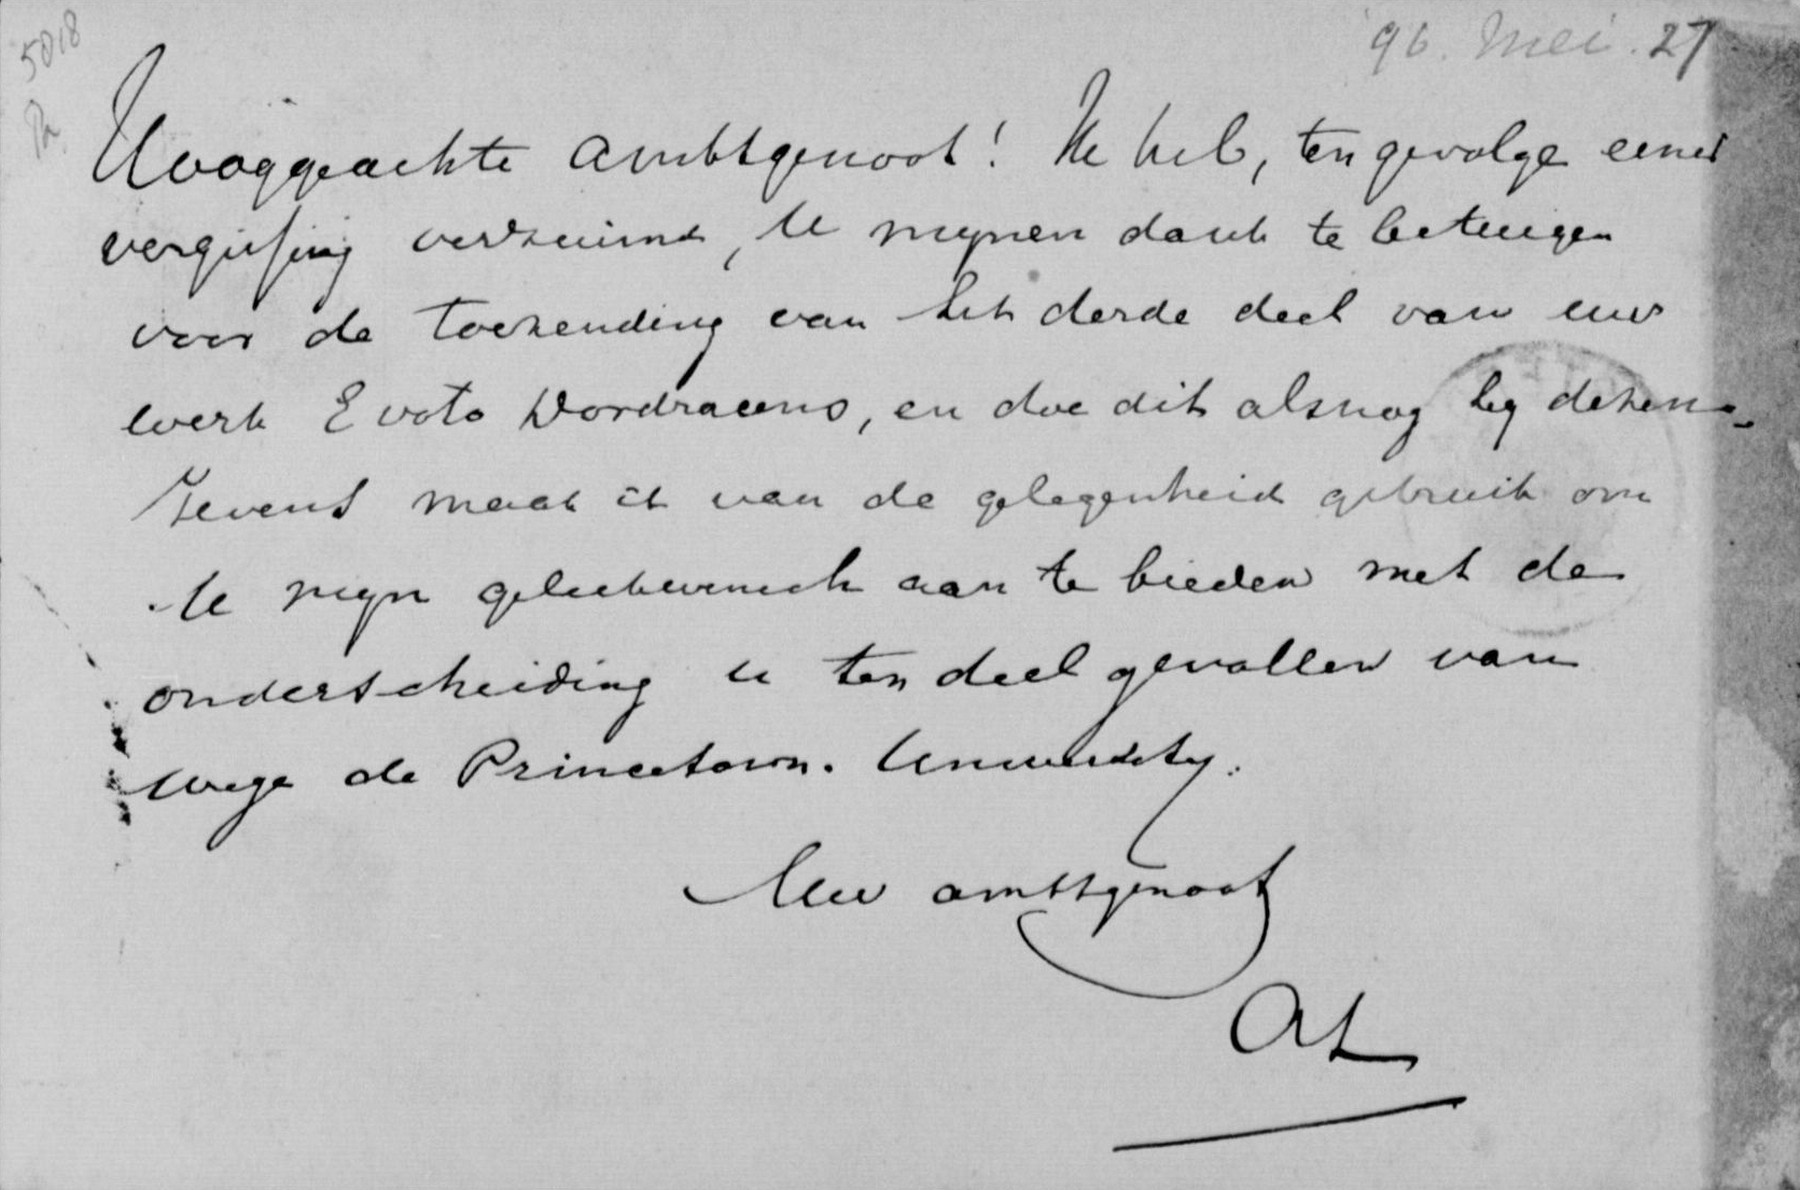 5018
96. Mei. 27
Hooggeachte Ambtgenoot! Ik heb, ten gevolge eener
vergissing verzuimd, U mijnen dank te betuigen
voor de toezending van het derde deel van uw
werk E voto Dordraceno, en doe dit alsnog bij dezen.
Tevens maak ik van de gelegenheid gebruik om
U mijn gelukwensch aan te bieden met de
onderscheiding u ten deel gevallen van
wege de Princetown. University.
Uw ambtgenoot